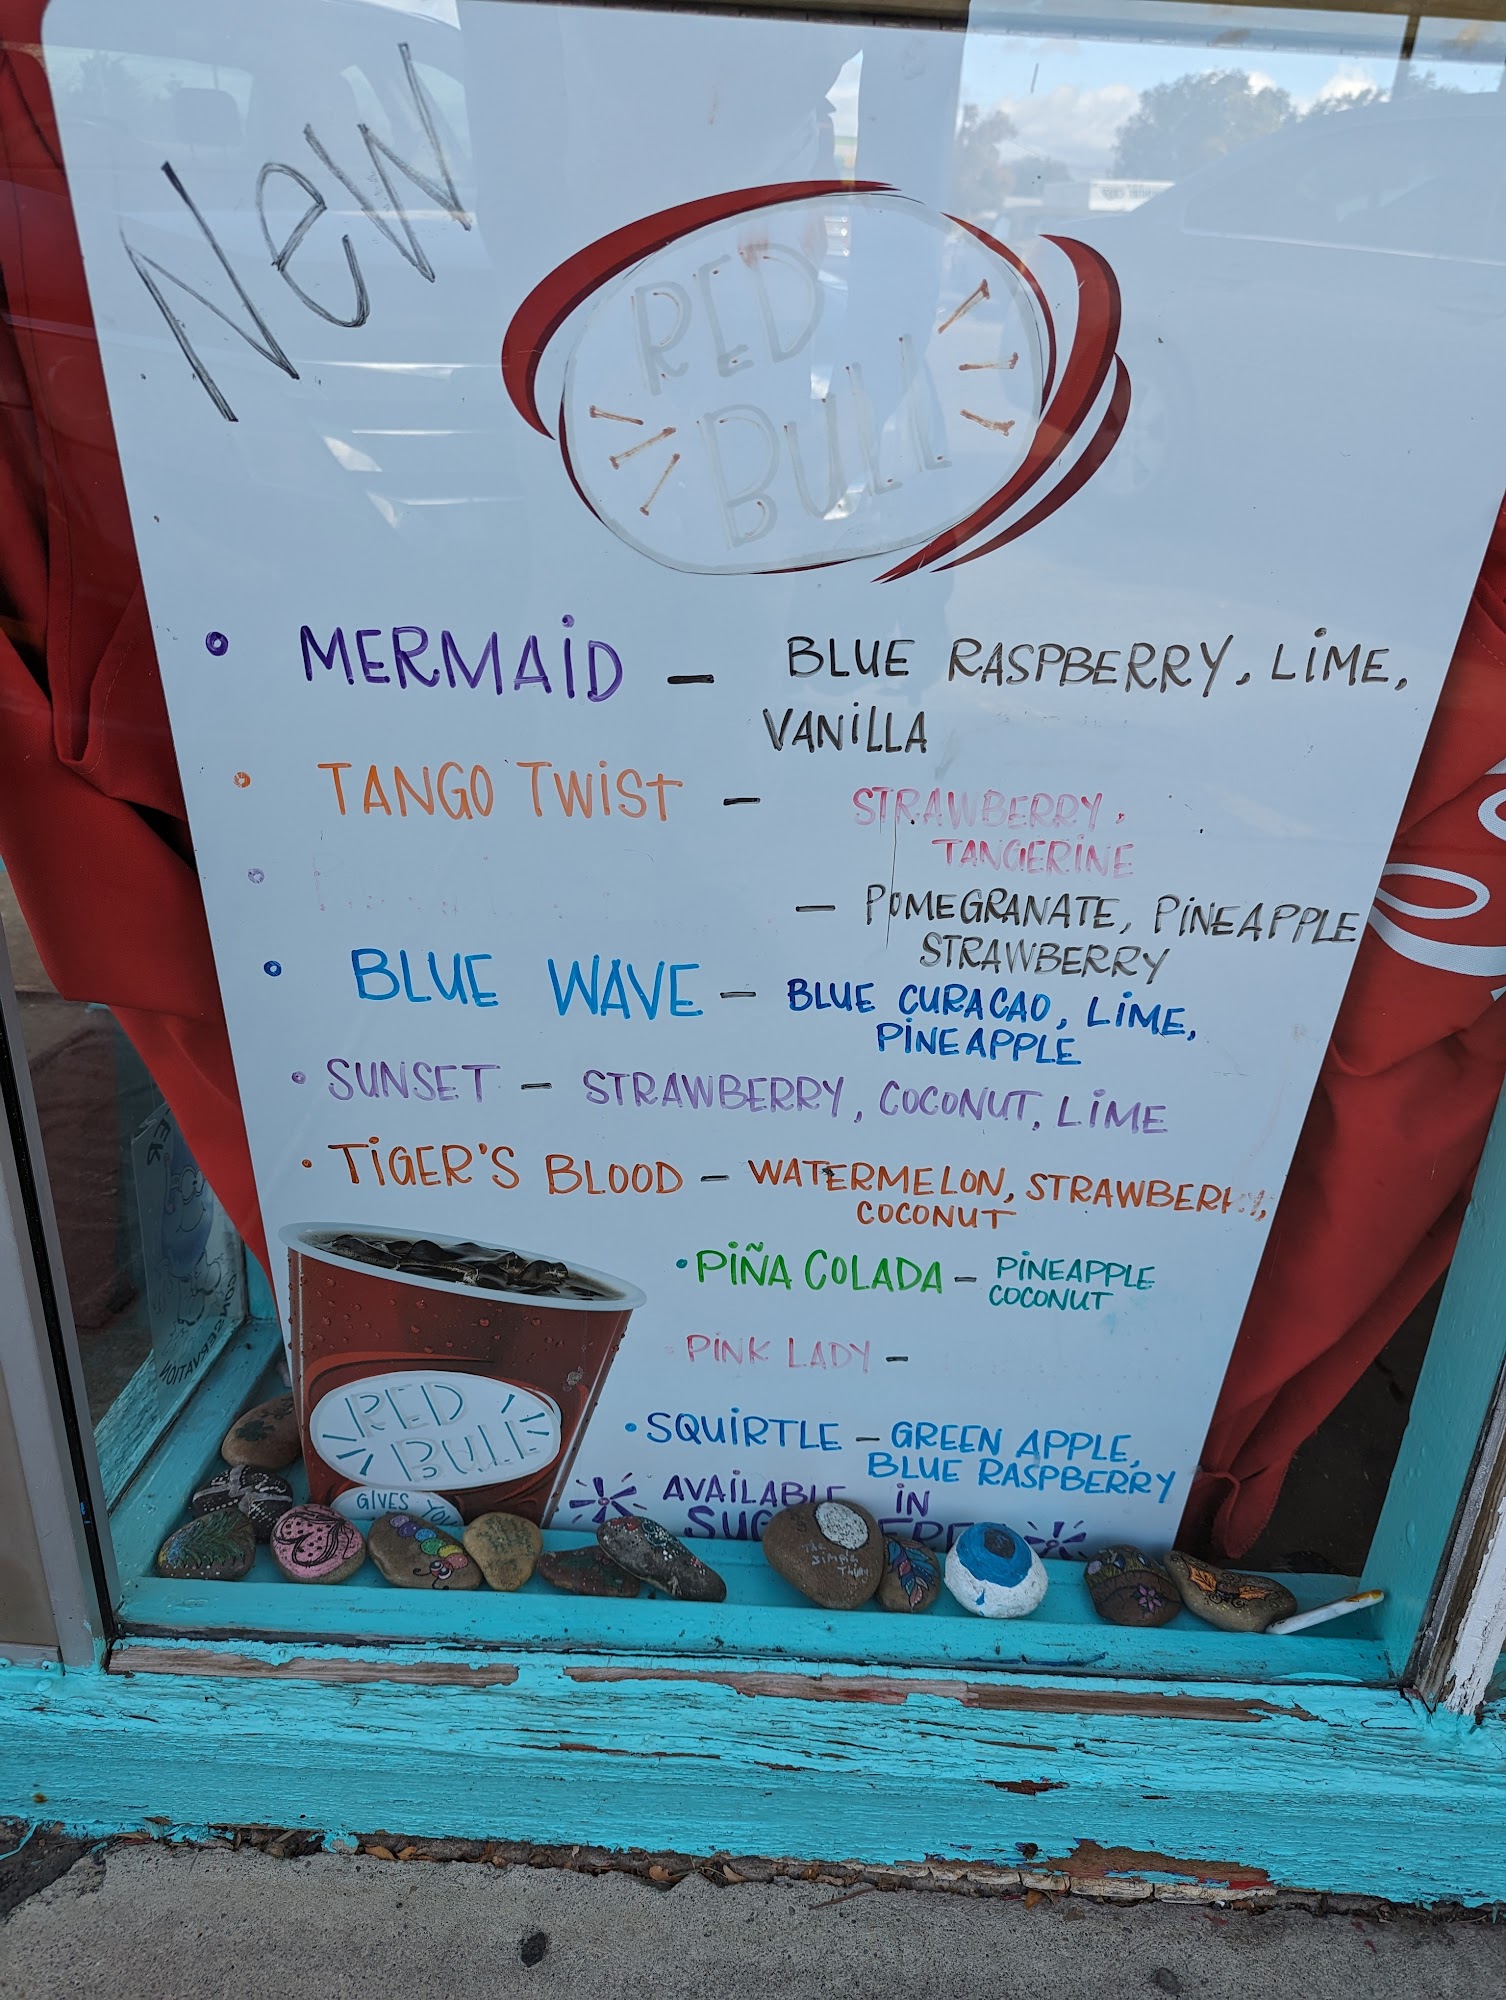 New
RED
BULL
• MERMAID — BLUE RASPBERRY, LIME,
VANILLA
• TANGO TWIST — STRAWBERRY,
TANGERINE
— POMEGRANATE, PINEAPPLE
STRAWBERRY
• BLUE WAVE — BLUE CURACAO, LIME,
PINEAPPLE
• SUNSET — STRAWBERRY, COCONUT, LIME
• TIGER'S BLOOD — WATERMELON, STRAWBERRY,
COCONUT
• PIÑA COLADA — PINEAPPLE
COCONUT
• PINK LADY —
• SQUIRTLE — GREEN APPLE,
BLUE RASPBERRY
AVAILABLE IN
RED
BULL
GIVES YOU